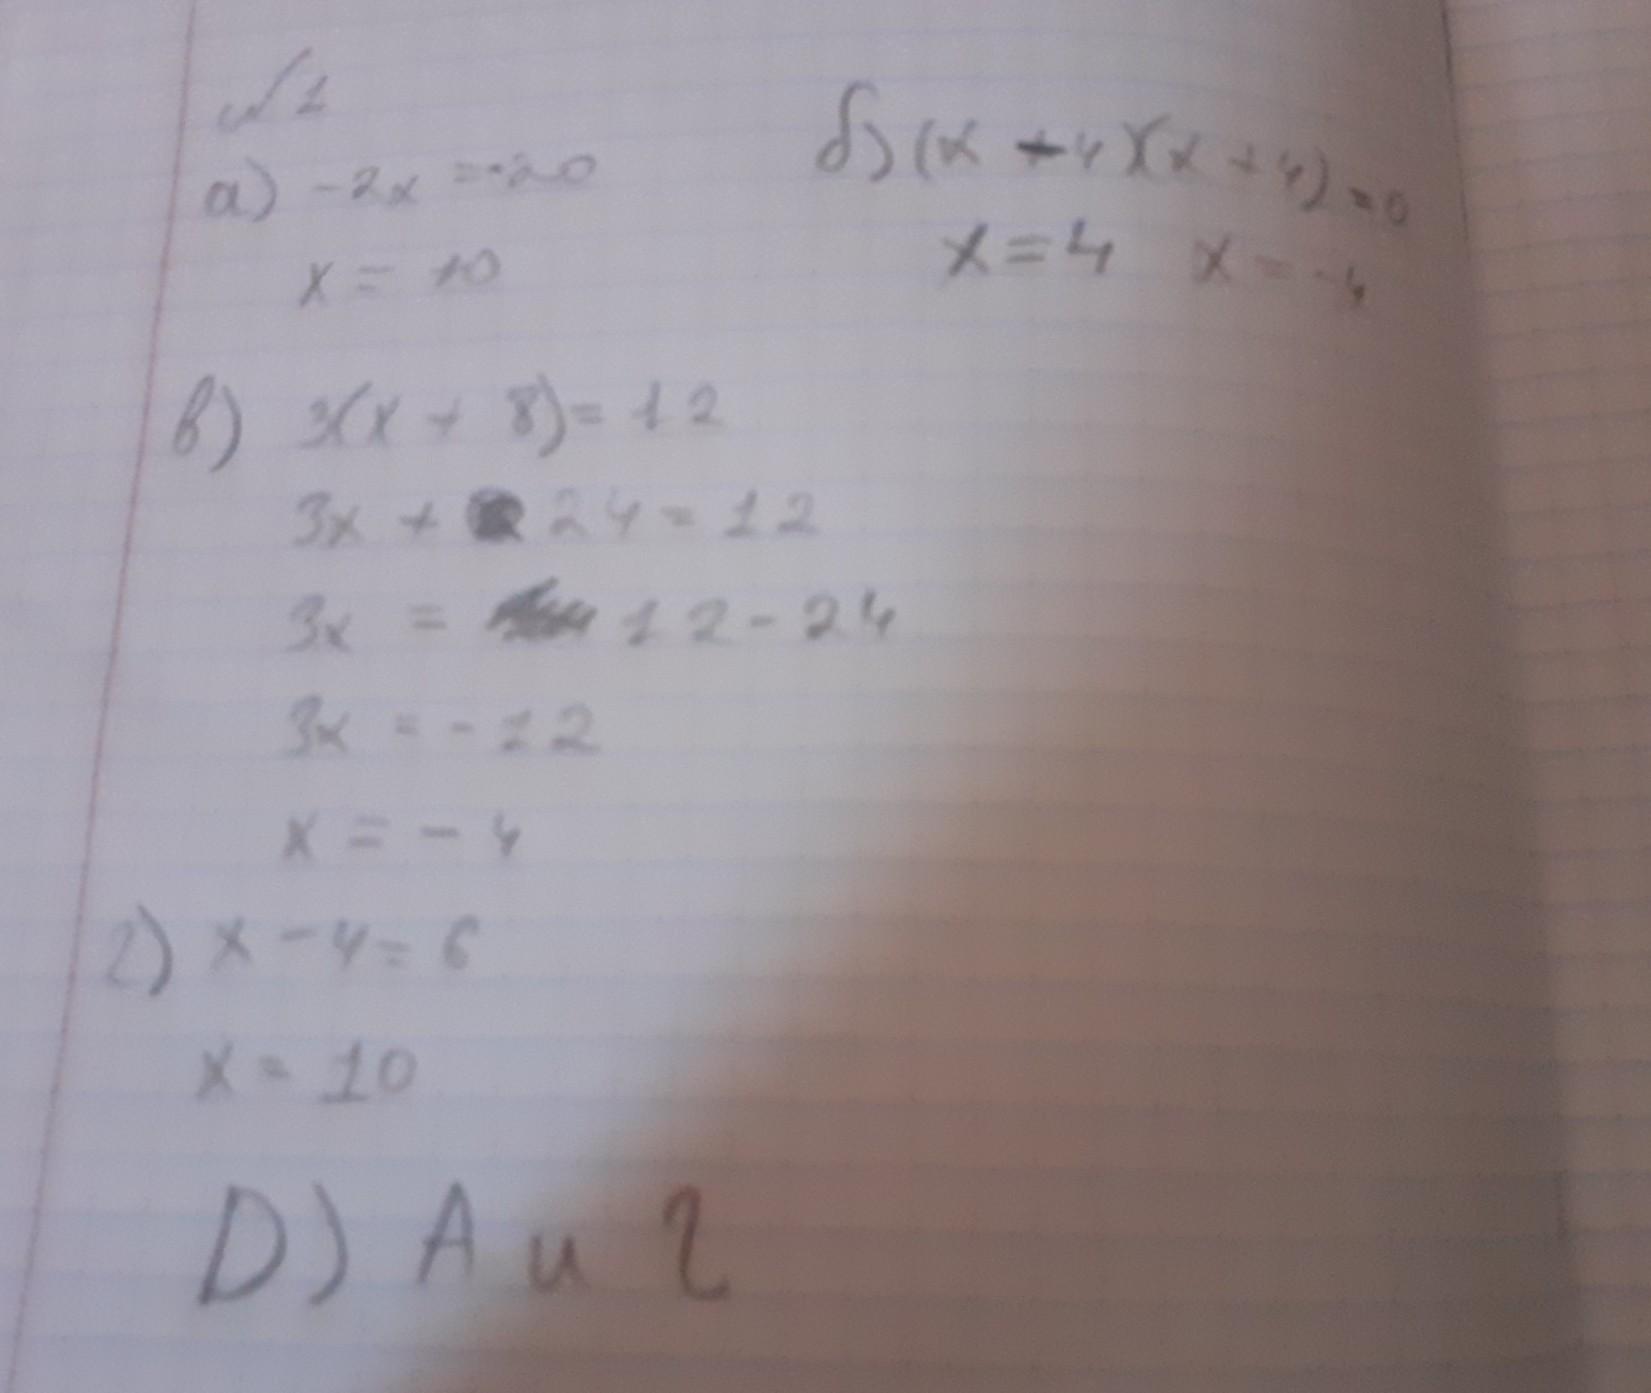 №1
а) -2x = -20
x = 10
б) (x - 4)(x + 4) = 0
x = 4 x = -4
в) 3(x + 8) = 12
3x + 24 = 12
3x = 12 - 24
3x = -12
x = -4
г) x - 4 = 6
x = 10
D) А и г